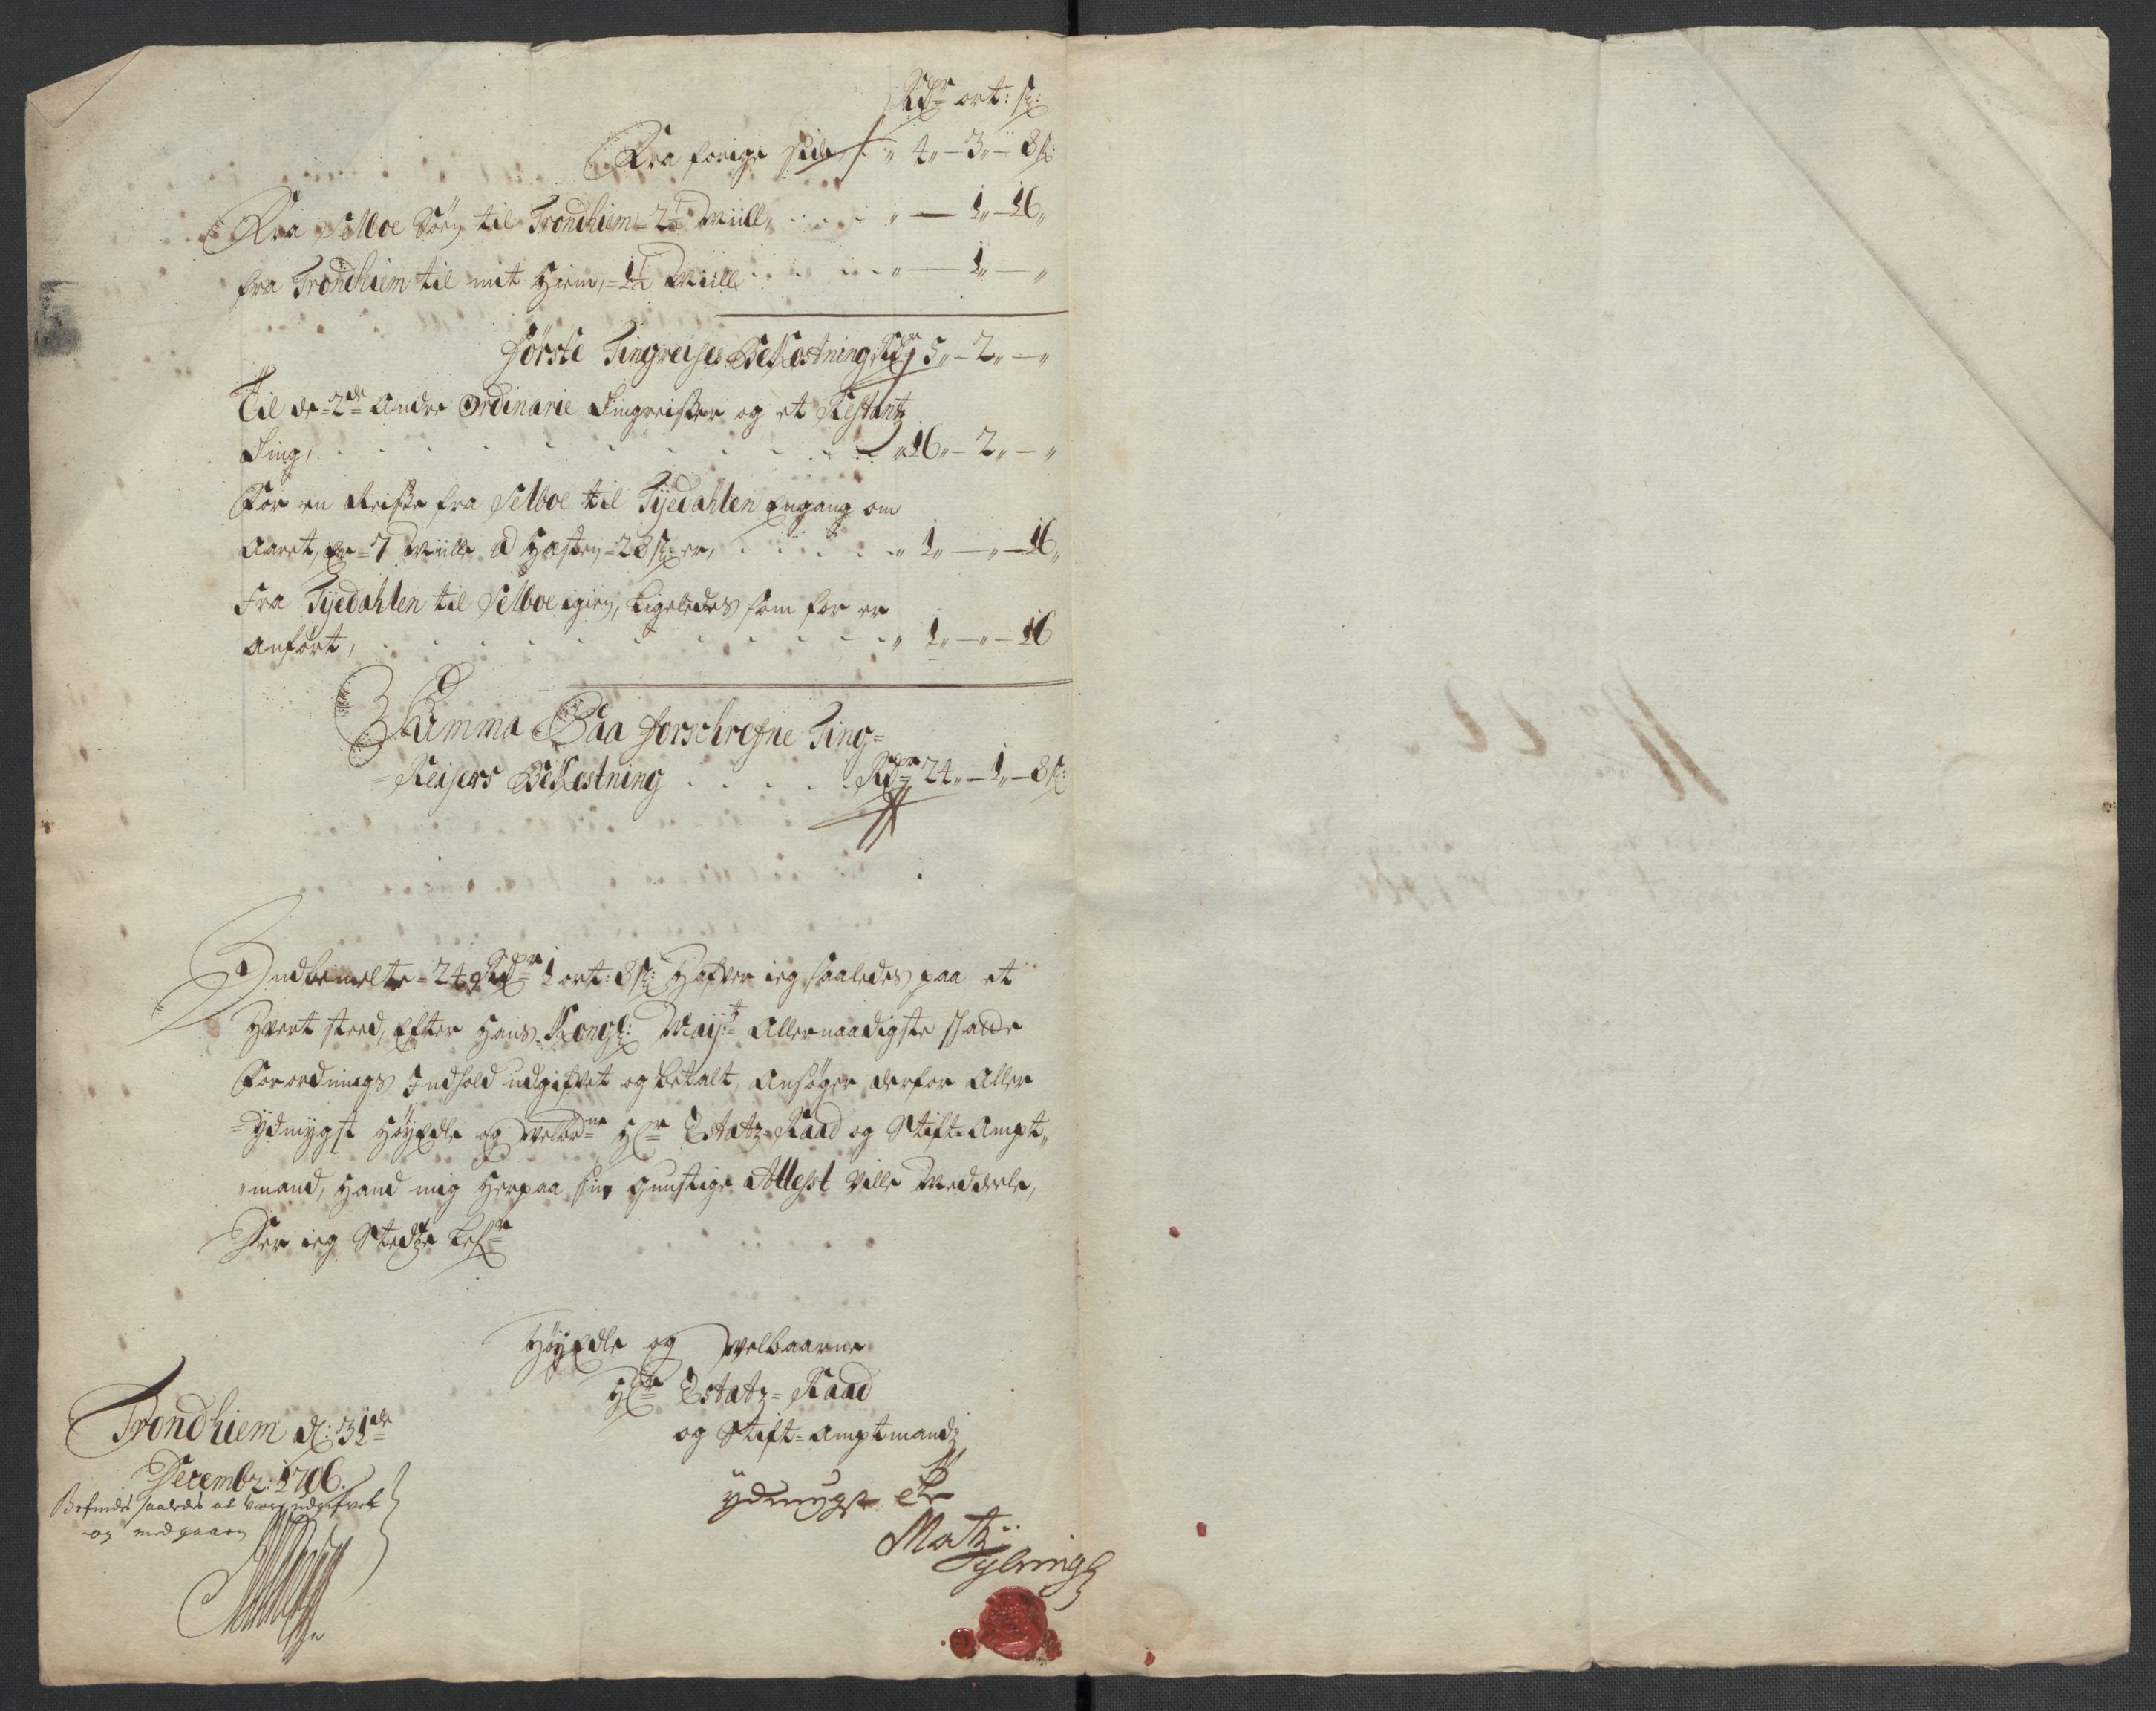 Rdr ort: s:
Fra forige side „ 4„ — 3„ — 8 s:
Fra Selboe Søen til Trondhiem 2½ Miill, . . . . „ — 1„ — 16„
fra Trondhiem til mit Hiem, = 1½ Miill . . . . „ — 1„ — „
Første Tingreises Bekostning Rdr 5„ — 2„ — „
Til de = 2de andre Ordinarie Tingreiser og et Restantz
Ting, . . . . . . . . . . „ 16„ — 2„ — „
For en Reise fra Selboe til Tyedahlen Engang om
Aaret, er = 7 Miille ad Hesten = 28 s: er, . . . . . „ 1„ — „ — 16„
Fra Tyedahlen til Selboe igien, Ligeledes som for er
Anført, . . . . . . . . . . „ 1„ — „ — 16
Summa Paa forschrefne Ting=
=Reisers Bekostning . . . . . Rdr 24„ — 1„ — 8 s:
Indbemelte = 24 Rdr 1 ort: 8 s: Hafver ieg saaledes paa et
Hvert sted, Efter Hans Kongl: Mayt: Allernaadigste
Forordnings Indhold udgifvet og betalt, Ansøger derfor Aller
=ydmygst HøyEdle og Velbrne Hr Estatz=Raad og Stift=Ampt„
„mand, Hand mig Herpaa sin gunstige Attest Ville Meddeele,
Der ieg Stedtze
HøyEdle og Velbaarne
Hr Estatz=Raad
og Stift=Amptmandz
Trondhiem d: 31de
Decembr: 1706.
ydmygste
Befindes saaledes at vere udgifvet
og medgaaen
Matz